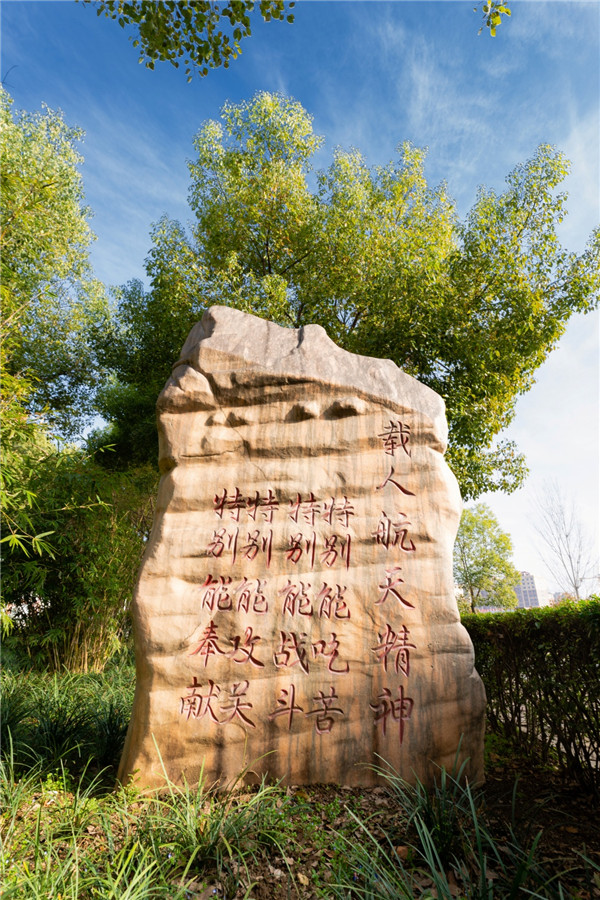 载人航天精神
特别能吃苦
特别能战斗
特别能攻关
特别能奉献